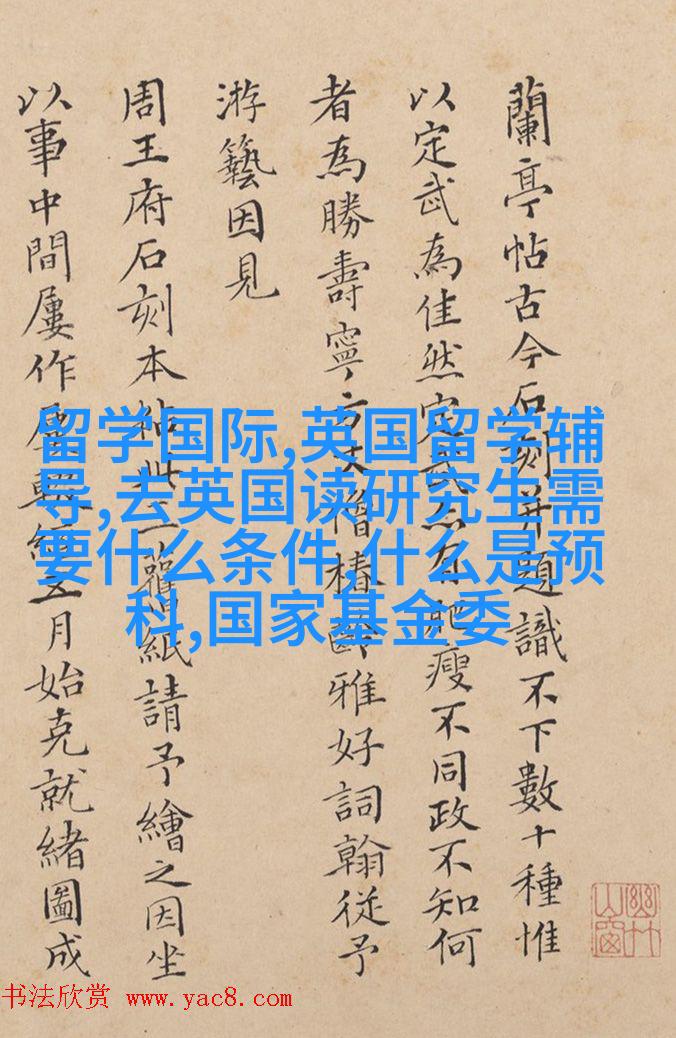 蘭亭帖古今石刻并題識不下數十種惟
以定武為佳然定武亦有肥瘦不同政不知何
者為勝壽寧方丈僧椿齡雅好詞翰從予
游藝因見
周王府石刻本帖此二舊紙請予繪之因坐
以事中間屢作屢輟經五月始克就緒圖成
留学国际,英国留学辅
导,去英国读研究生需
要什么条件,什么是预
科,国家基金委
书法欣赏 www.yac8.com